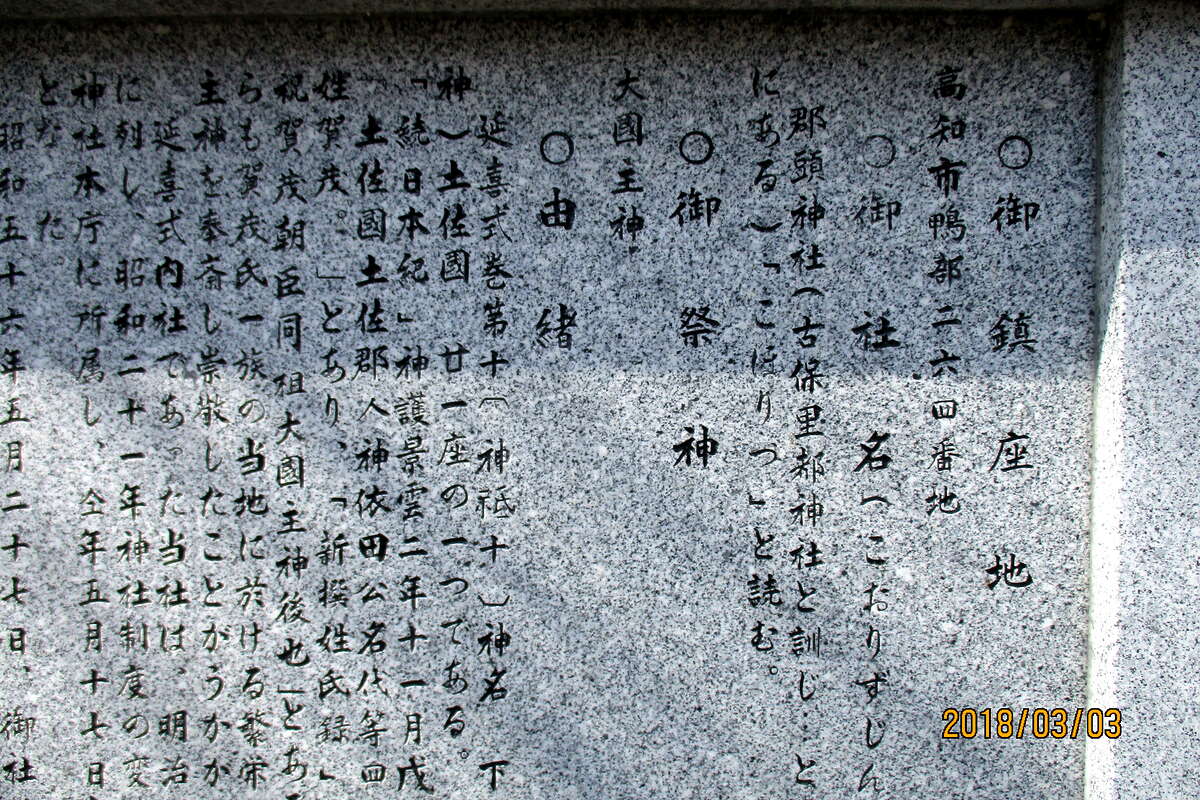 ○御鎮座地
高知市鴨部二六四番地
○御社名(こおりずじん
郡頭神社(古保里都神社と訓じ…と
にある)「こほりつ」と読む。
○御祭神
大國主神
○由緒
延喜式巻第十〔神祇十〕神名下
神)土佐國廿一座の一つである。
「続日本紀」神護景雲二年十一月戊
土佐國土佐郡人神依田公名代等四
姓賀茂。」とあり、「新撰姓氏録」
祝賀茂朝臣同祖大國主神後也」とあ
らも賀茂氏一族の当地に於ける繁栄
主神を奉斎し崇敬したことがうかか
延喜式内社であった当社は、明治
に列し、昭和二十一年神社制度の変
神社本庁に所属し、仝年五月十七日
となった。
昭和五十六年五月二十七日、御社
2018/03/03